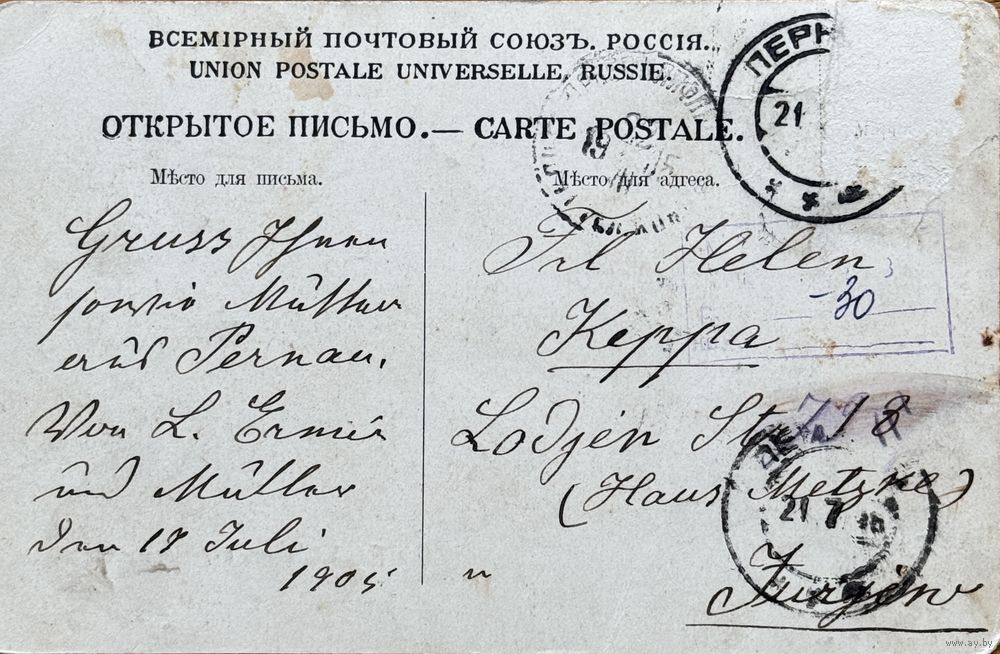 ВСЕМІРНЫЙ ПОЧТОВЫЙ СОЮЗЪ. РОССІЯ.
UNION POSTALE UNIVERSELLE. RUSSIE.
ОТКРЫТОЕ ПИСЬМО.— CARTE POSTALE.
Мѣсто для письма.
Мѣсто для адреса.
Gruss Ihnen
sowie Mutter
aus Pernau.
Von L.
und Mutter
Den 17 Juli
1905
Frl Helen
Keppa
St 18
(Haus Metzke)
Jurjew
ПЕРН
21
19
-30
21 7
www.ay.by